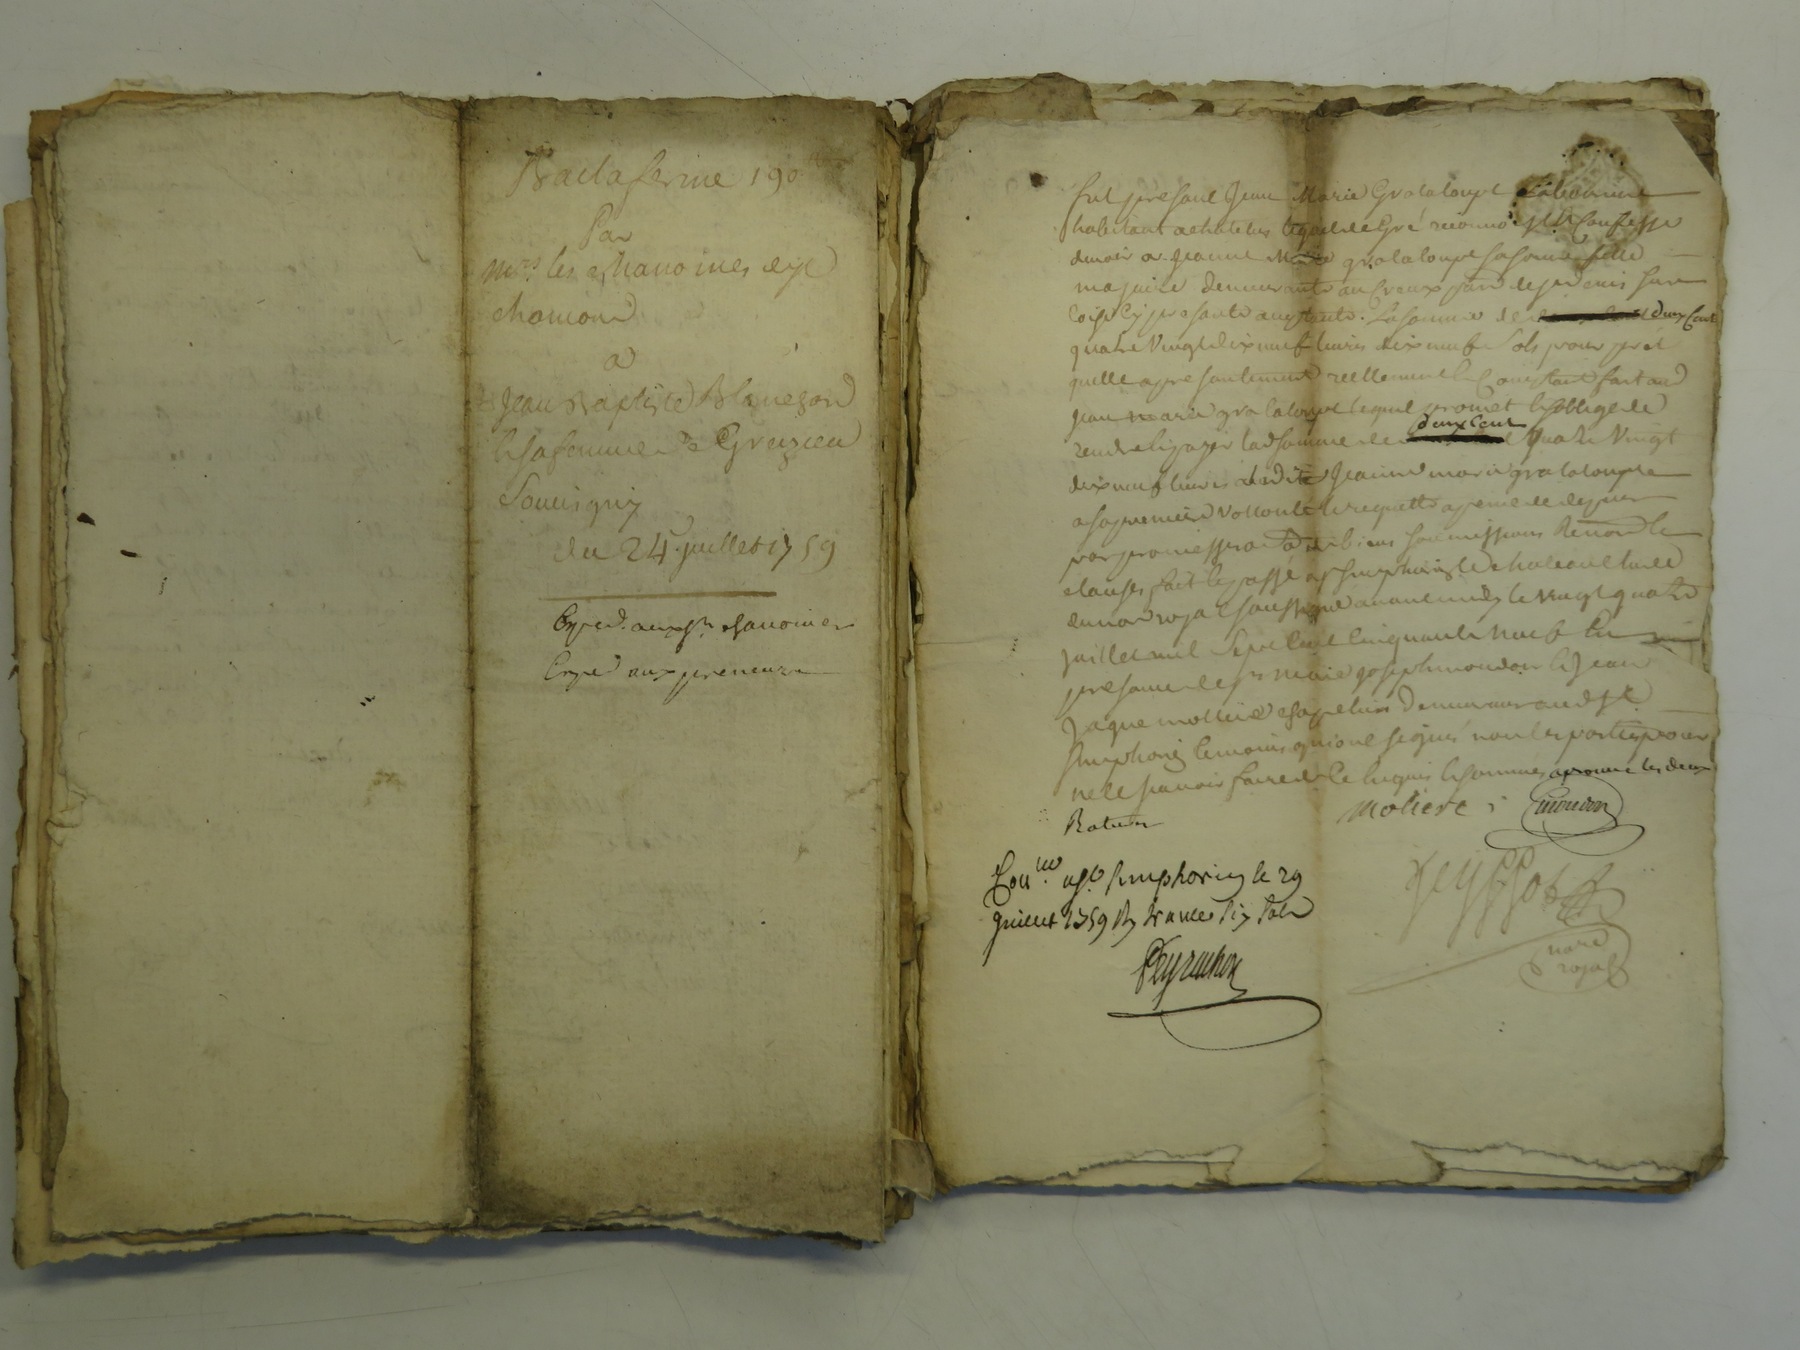 Bail a ferme 190
Par
Mrs les Chanoines de St
chamond
a
Jean Baptiste Blanchard
et sa femme de Grezieu
Souvigny
du 24 juillet 1759
Exped. aux Srs chanoines
Exped aux preneurs
fut present Jean Marie Grataloupt
habitant a lequel de gré reconnoit et Confesse
devoir a Jeanne Marie grataloupt sa soeur fille
majeure demeurante au Creux parr de st denis sur
coise icy presante acceptante. La somme de deux Cent
quatre Vingt dix neuf livres dix neuf sols pour pret
quelle a presentement reellement Comptant fait aud
Jean marie grataloupt lequel promet et soblige de
rendre et payer lad somme de deux Cent quatre Vingt
dix neuf livres a ladite Jeanne marie grataloupt
a sa premiere Volonté et requette a peine de depens
par promesse biens soumissions Renon et
clauses fait et passé a st simphorien le chateau etude
du nore royal soussigné avant midy le vingt quatre
juillet mil Sept Cent Cinquante Neuf En
presence de Srs joseph moudon et Jean
Jaque mollière chapelier demeurant aud st
simphorien temoins qui ont signé non les parties pour
ne le scavoir faire de ce enquis et sommés aprouvé les deux
Ratures
moliere Cmoudon
Con. a St Simphorien le 29
Juillet 1759 Rx trantes six sols
Peyrachon
nore
royal